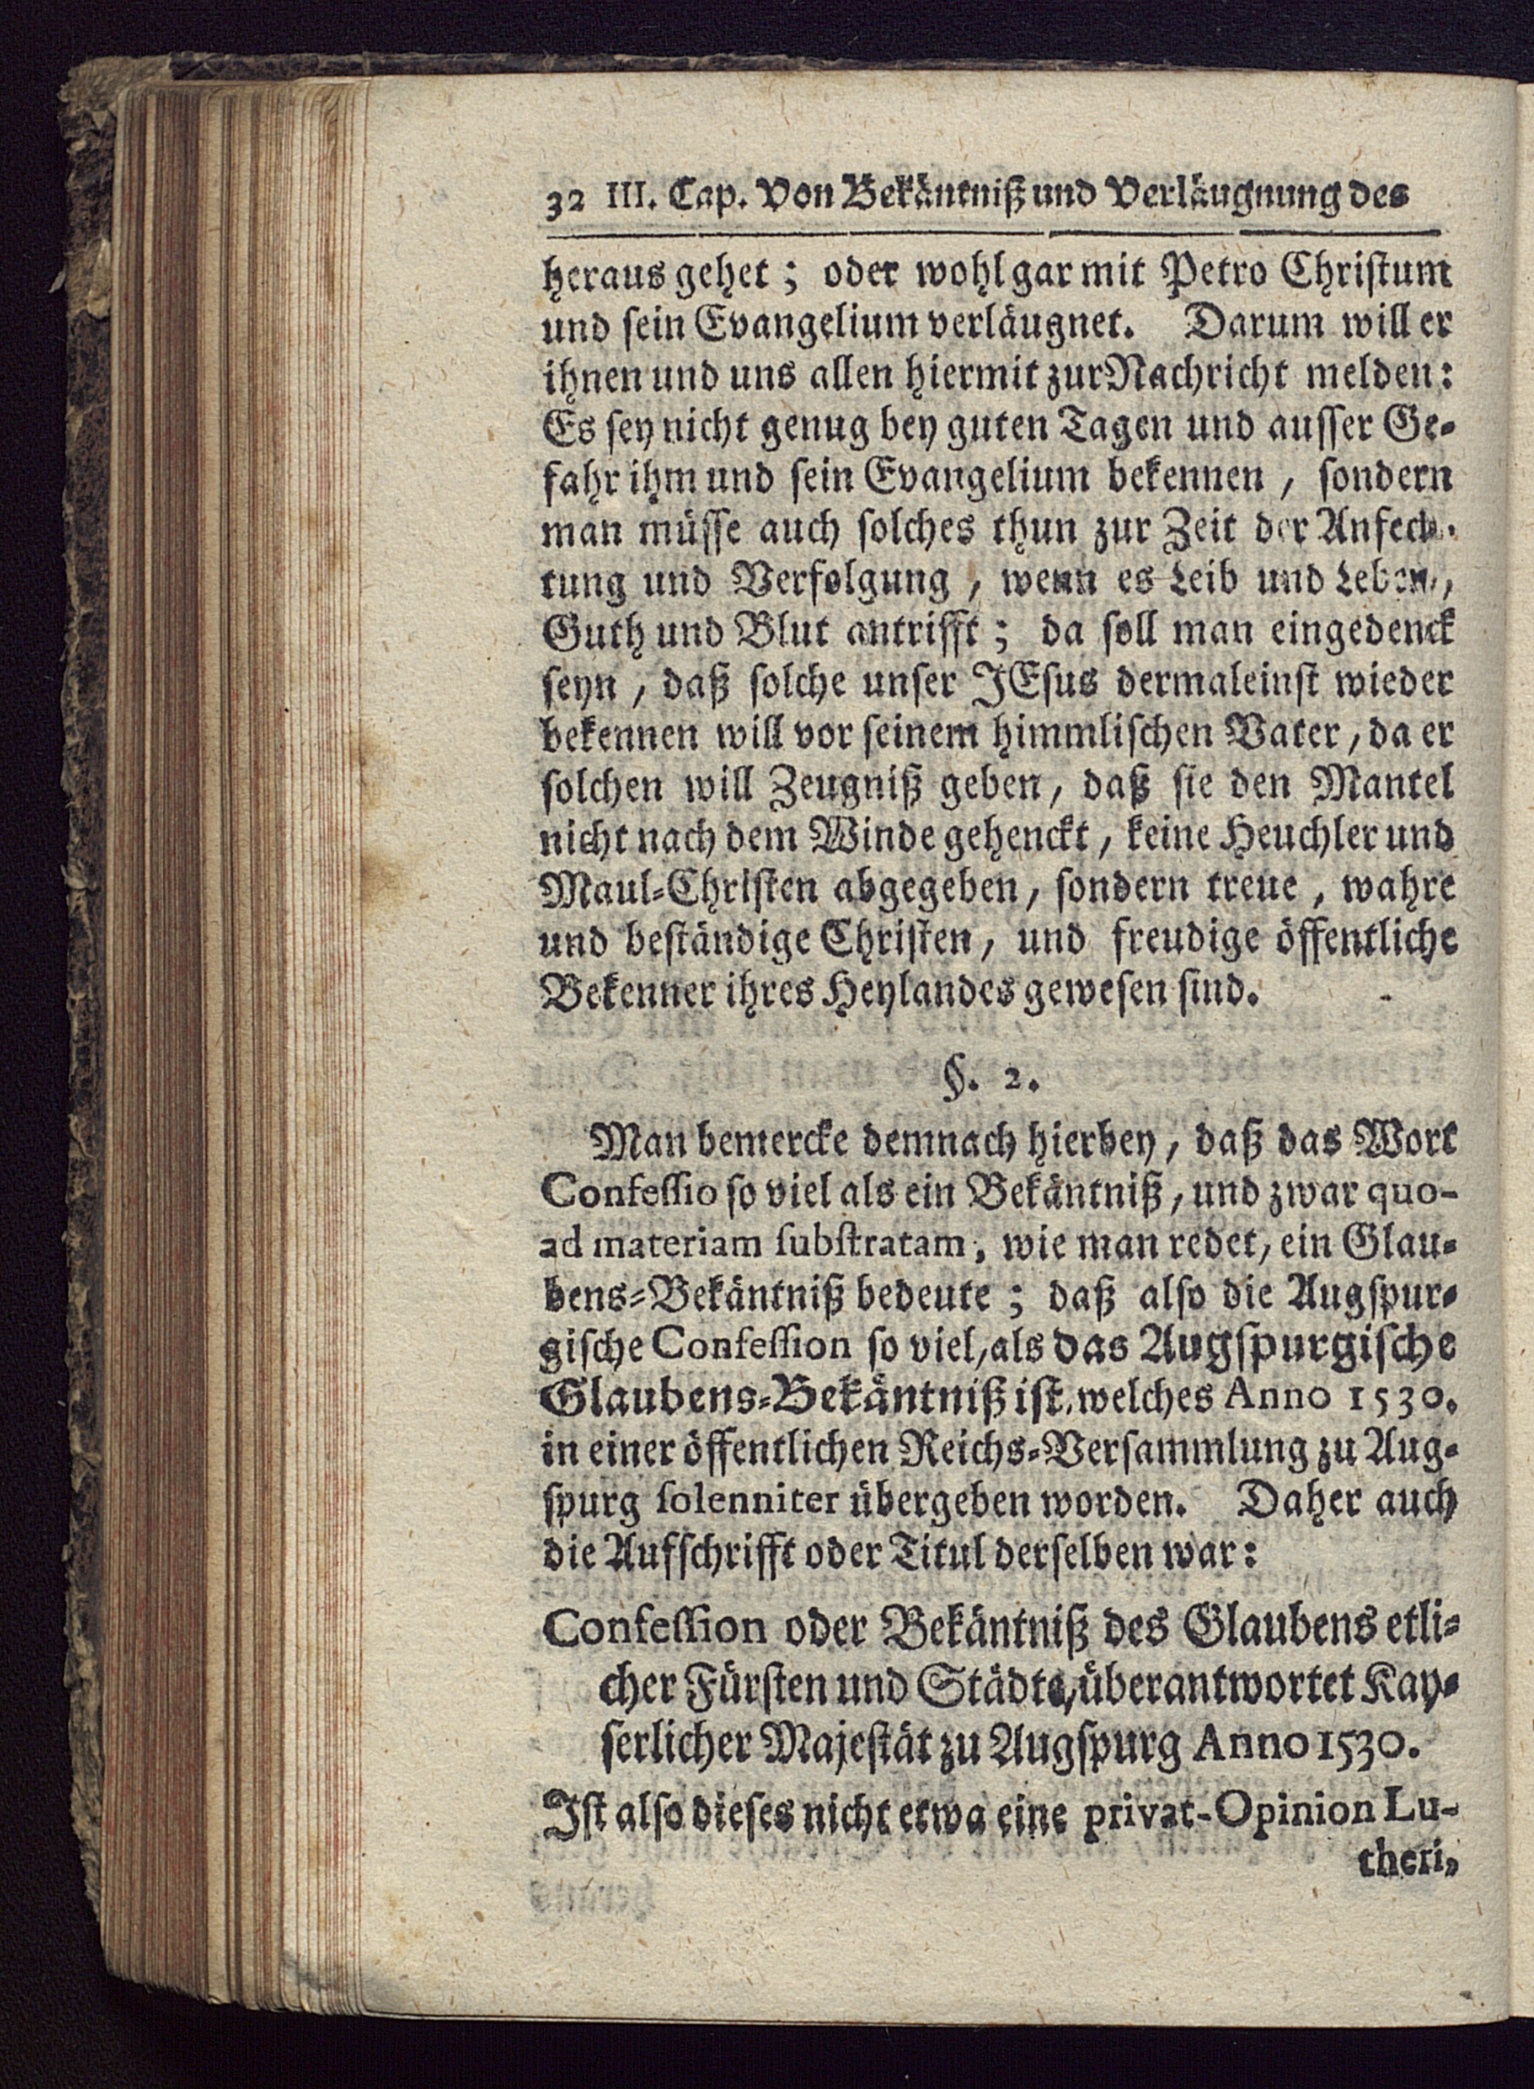 32 III. Cap. Von Bekäntniß und Verläugnung des
heraus gehet; oder wohl gar mit Petro Christum
und sein Evangelium verläugnet. Darum will er
ihnen und uns allen hiermit zur Nachricht melden:
Es sey nicht genug bey guten Tagen und ausser Ge-
fahr ihm und sein Evangelium bekennen, sondern
man müsse auch solches thun zur Zeit der Anfech-
tung und Verfolgung, wenn es Leib und Leben,
Guth und Blut antrifft; da soll man eingedenck
seyn, daß solche unser JEsus dermaleinst wieder
bekennen will vor seinem himmlischen Vater, da er
solchen will Zeugniß geben, daß sie den Mantel
nicht nach dem Winde gehenckt, keine Heuchler und
Maul-Christen abgegeben, sondern treue, wahre
und beständige Christen, und freudige öffentliche
Bekenner ihres Heylandes gewesen sind.
§. 2.
Man bemercke demnach hierbey, daß das Wort
Confessio so viel als ein Bekäntniß, und zwar quo-
ad materiam substratam, wie man redet, ein Glau-
bens-Bekäntniß bedeute; daß also die Augspur-
gische Confession so viel, als das Augspurgische
Glaubens-Bekäntniß ist, welches Anno 1530.
in einer öffentlichen Reichs-Versammlung zu Aug-
spurg solenniter übergeben worden. Daher auch
die Aufschrifft oder Titul derselben war:
Confession oder Bekäntniß des Glaubens etli-
cher Fürsten und Städte, überantwortet Kay-
serlicher Majestät zu Augspurg Anno 1530.
Ist also dieses nicht etwa eine privat-Opinion Lu-
theri,